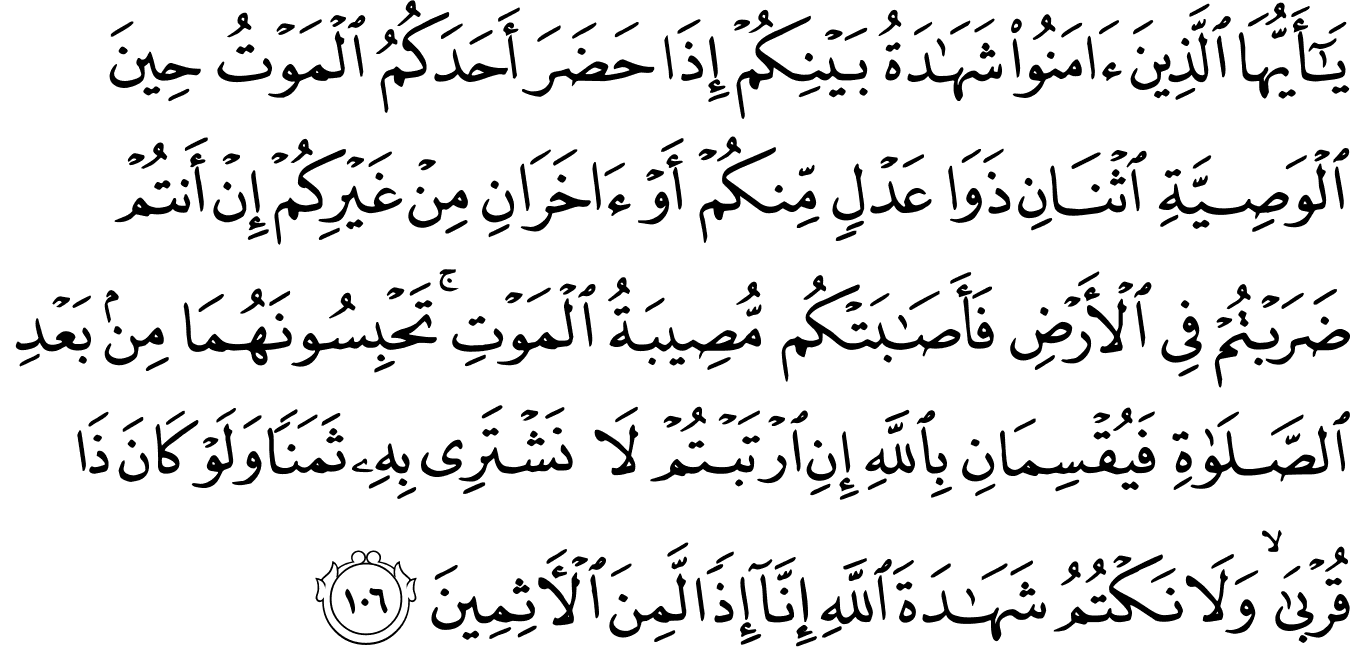 يَـٰٓأَيُّهَا ٱلَّذِينَ ءَامَنُوا۟ شَهَـٰدَةُ بَيْنِكُمْ إِذَا حَضَرَ أَحَدَكُمُ ٱلْمَوْتُ حِينَ
ٱلْوَصِيَّةِ ٱثْنَانِ ذَوَا عَدْلٍ مِّنكُمْ أَوْ ءَاخَرَانِ مِنْ غَيْرِكُمْ إِنْ أَنتُمْ
ضَرَبْتُمْ فِى ٱلْأَرْضِ فَأَصَـٰبَتْكُم مُّصِيبَةُ ٱلْمَوْتِ ۚ تَحْبِسُونَهُمَا مِنۢ بَعْدِ
ٱلصَّلَوٰةِ فَيُقْسِمَانِ بِٱللَّهِ إِنِ ٱرْتَبْتُمْ لَا نَشْتَرِى بِهِۦ ثَمَنًا وَلَوْ كَانَ ذَا
قُرْبَىٰ ۙ وَلَا نَكْتُمُ شَهَـٰدَةَ ٱللَّهِ إِنَّآ إِذًا لَّمِنَ ٱلْـَٔاثِمِينَ ١٠٦